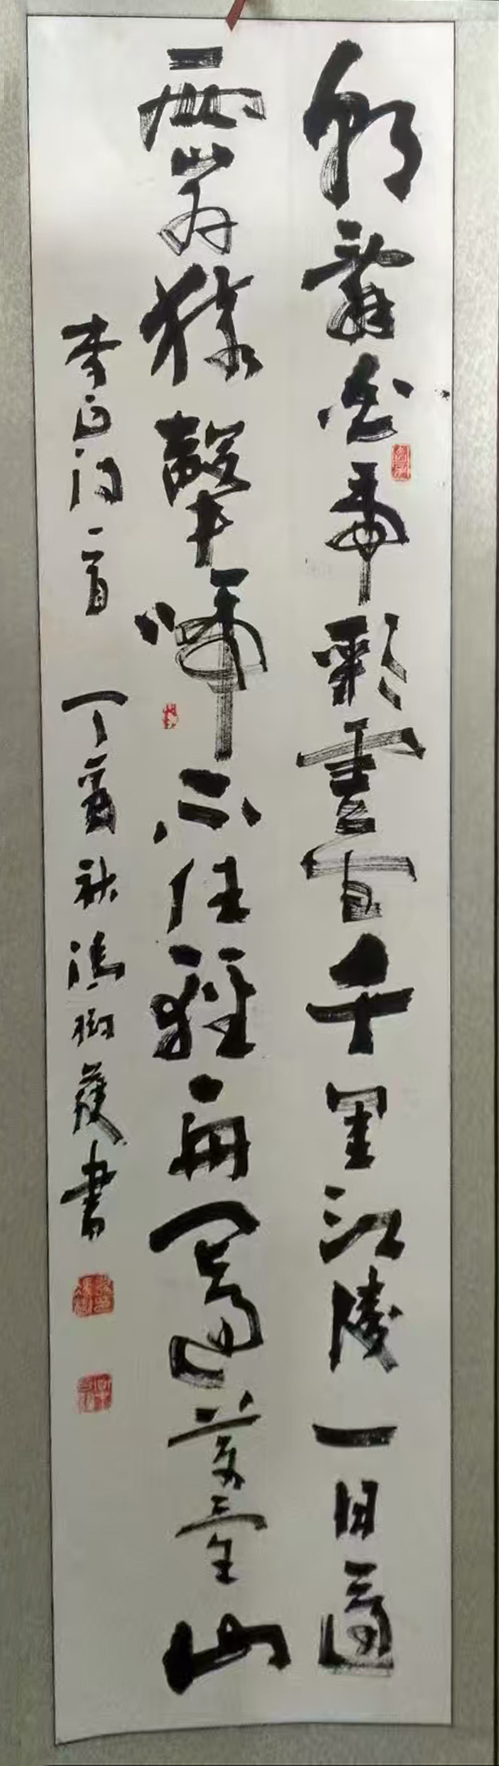 朝辭白帝彩雲間千里江陵一日還
兩岸猿聲啼不住輕舟已過萬重山
李白詩一首 丁酉秋 樹 書